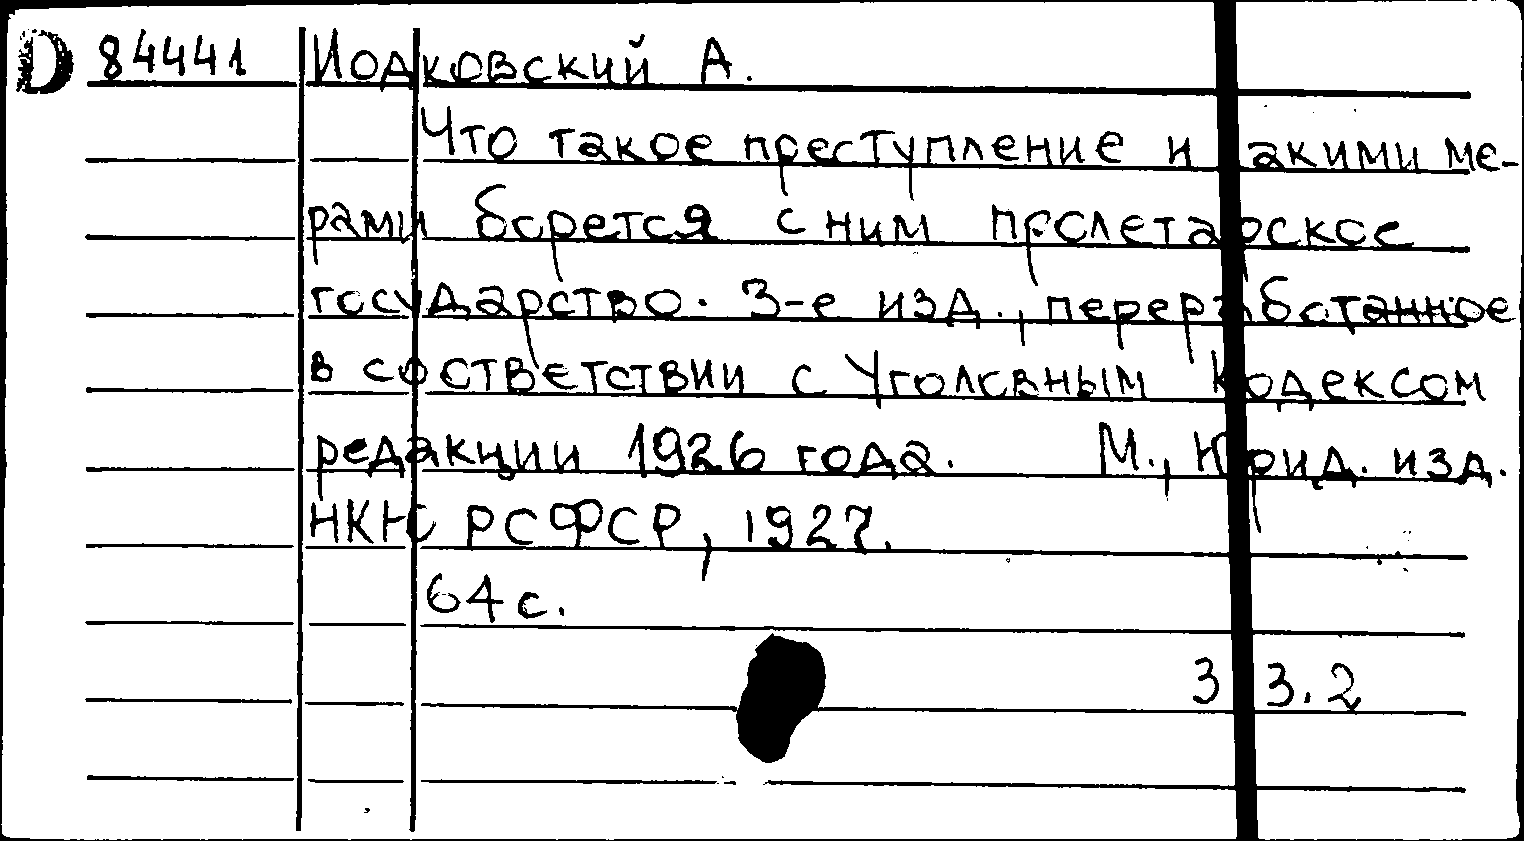 D 84441 Иодковский А.
Что такое преступление и какими ме-
рами борется с ним пролетарское
государство. 3-е изд., переработанное
в соответствии с Уголовным Кодексом
редакции 1926 года. М., Юрид. изд.
НКЮ РСФСР, 1927.
64 с.